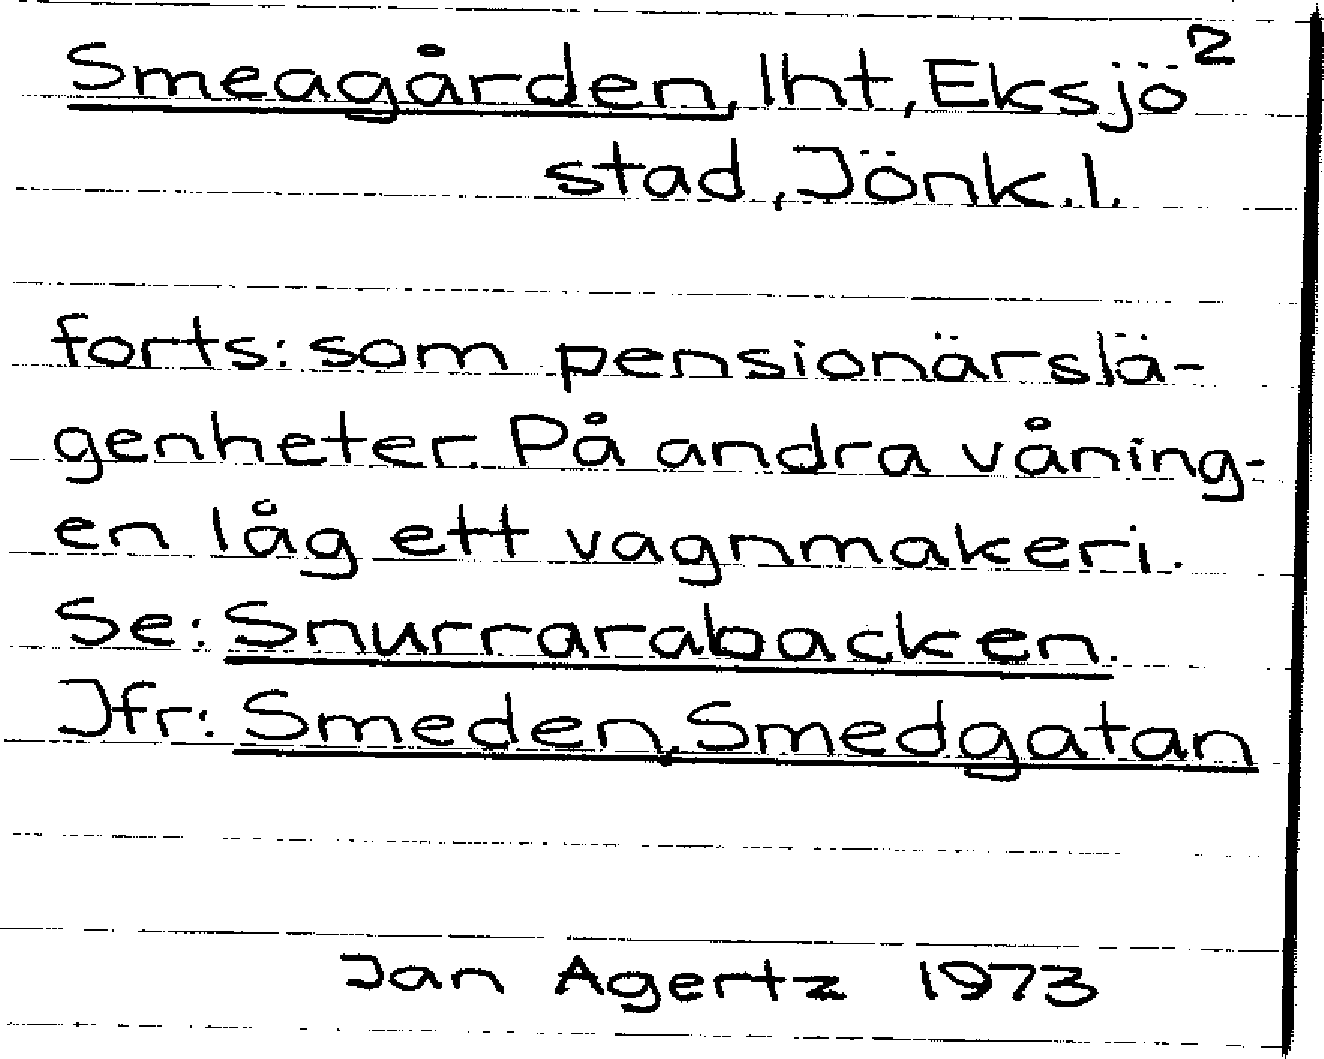 Smeagården, lht, Eksjö 2
stad, Jönk.l.
forts: som pensionärslä-
genheter. På andra våning-
en låg ett vagnmakeri.
Se: Snurrarabacken.
Jfr: Smeden, Smedgatan
Jan Agertz 1973